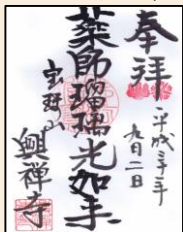 奉拝
平成三十年
九月二日
薬師瑠璃光如来
宝珠山
興禅寺